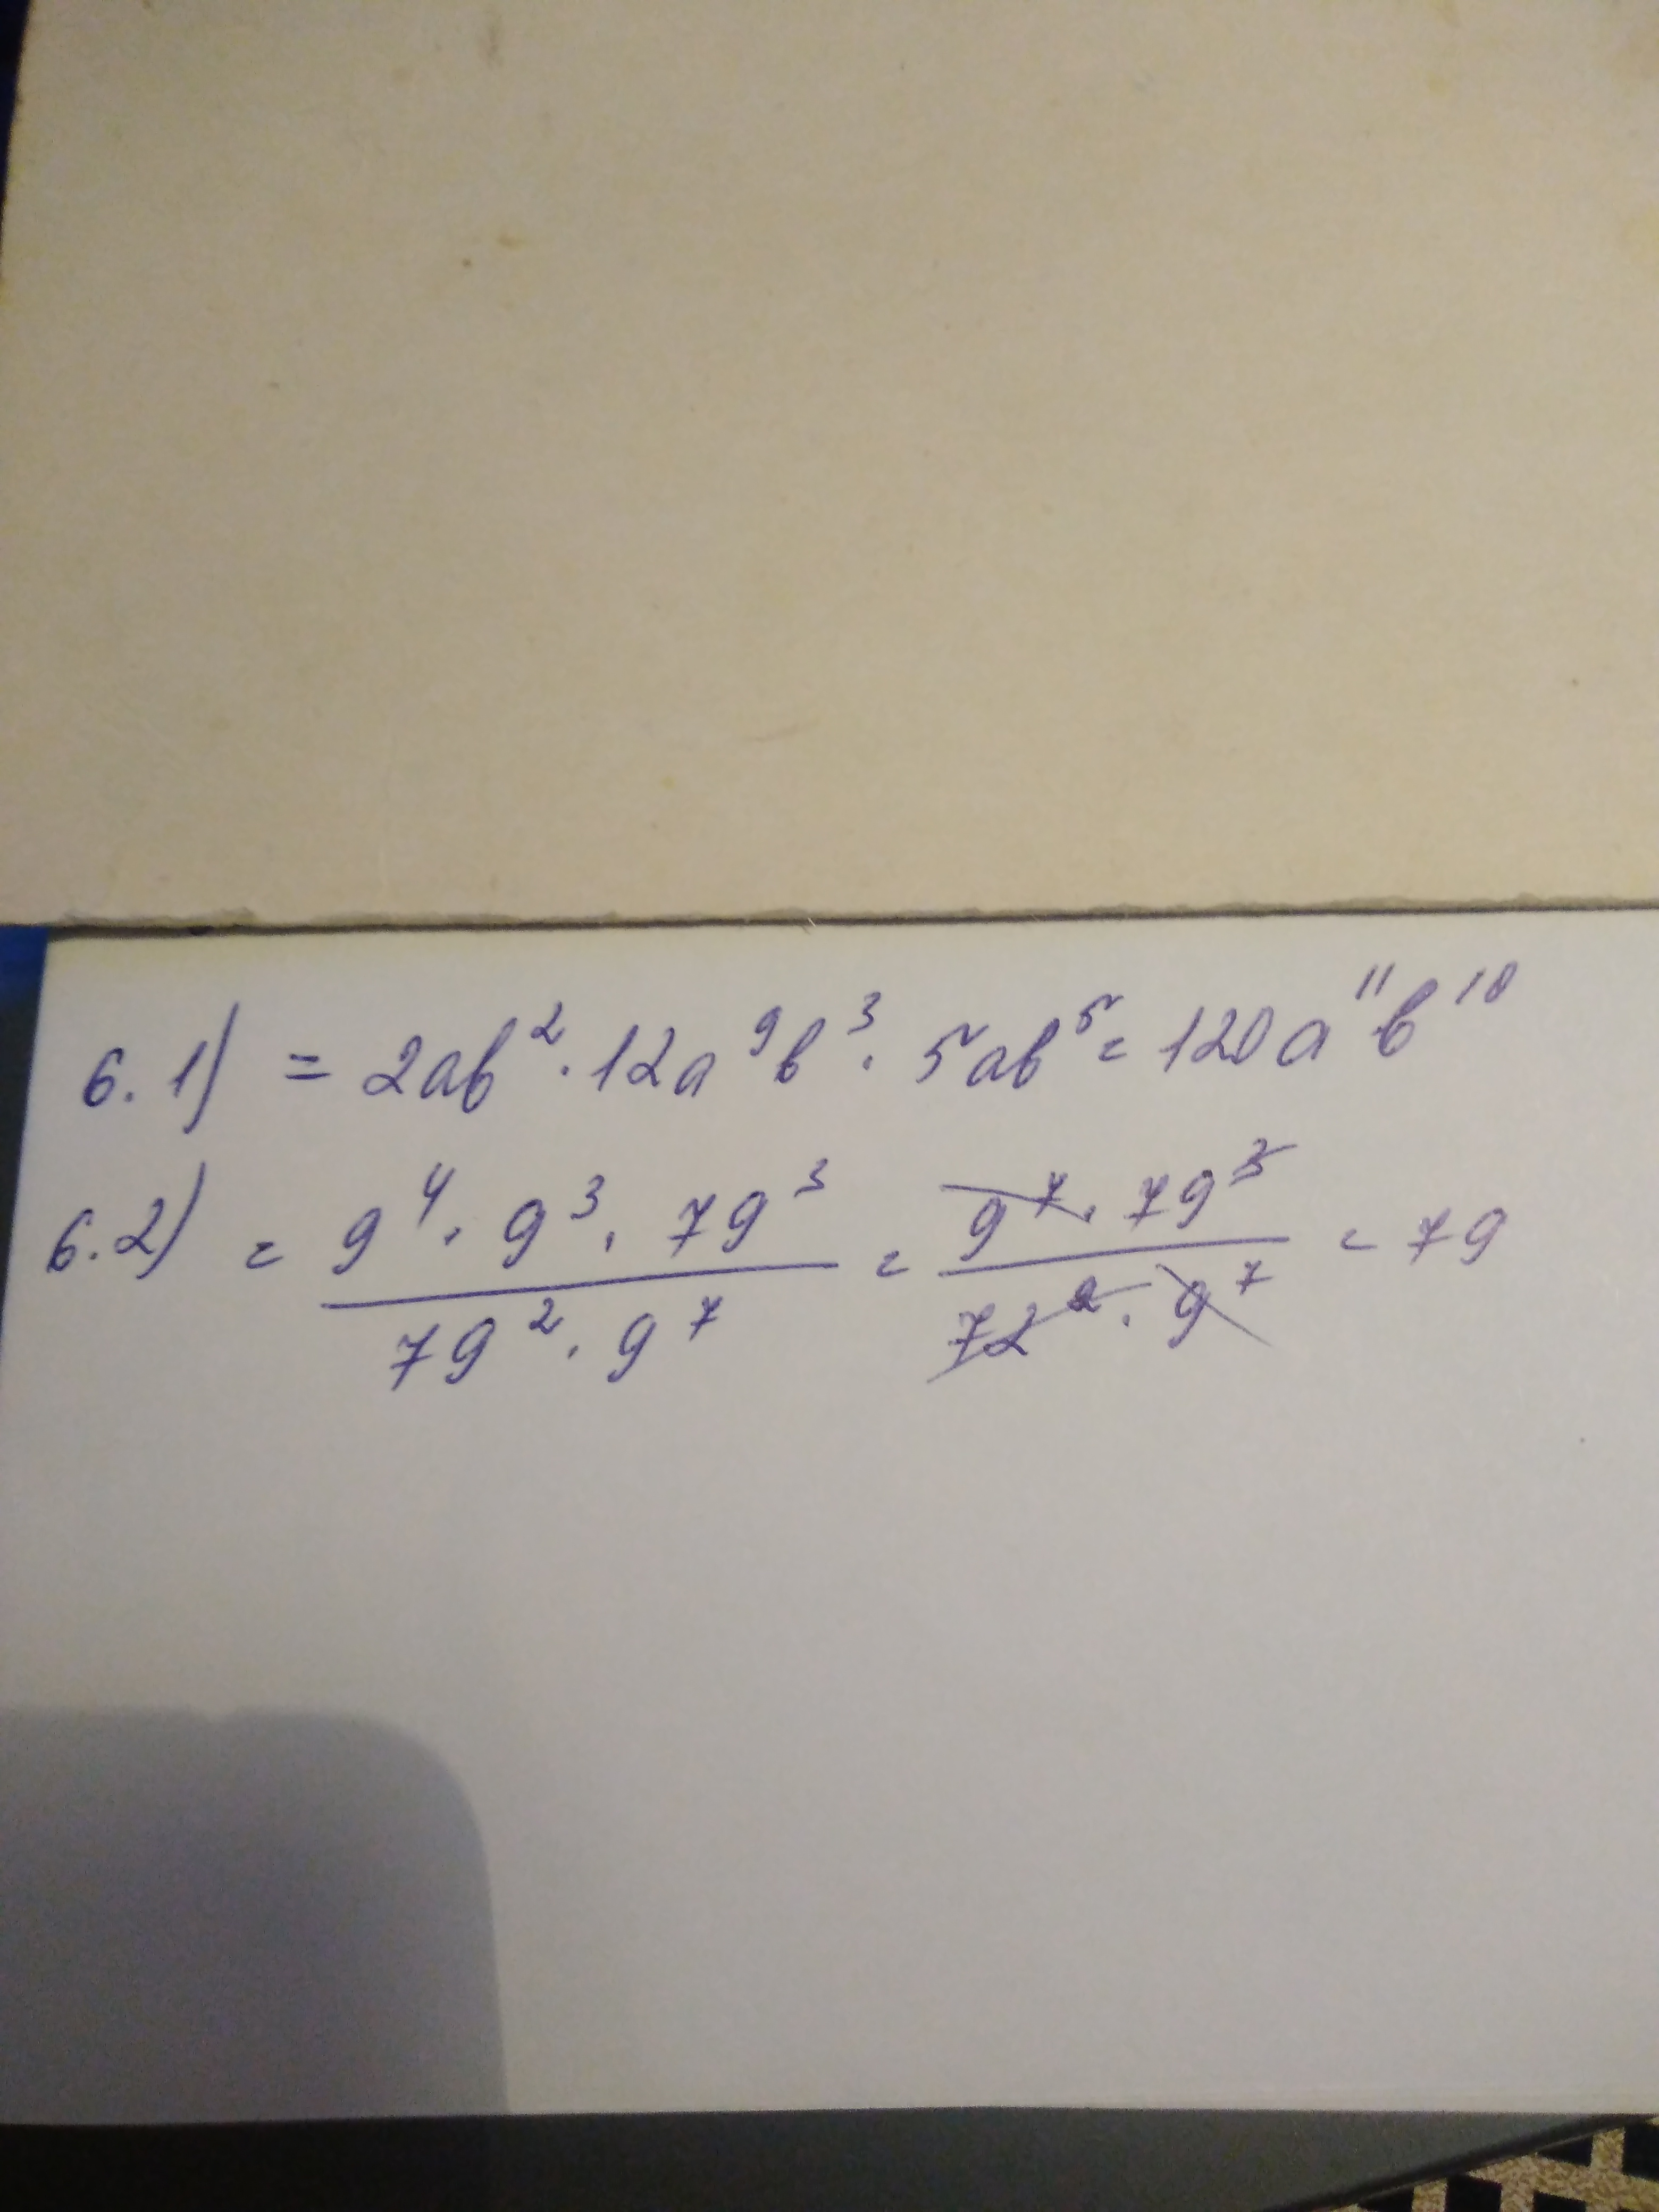 6.1) = 2ab² · 12a⁹b³ · 5ab⁵ = 120a¹¹b¹⁰
6.2) = (9⁴ · 9³ · 79³)/(79² · 9⁷) = (9⁷ · 79³)/(72² · 9⁷) = 79